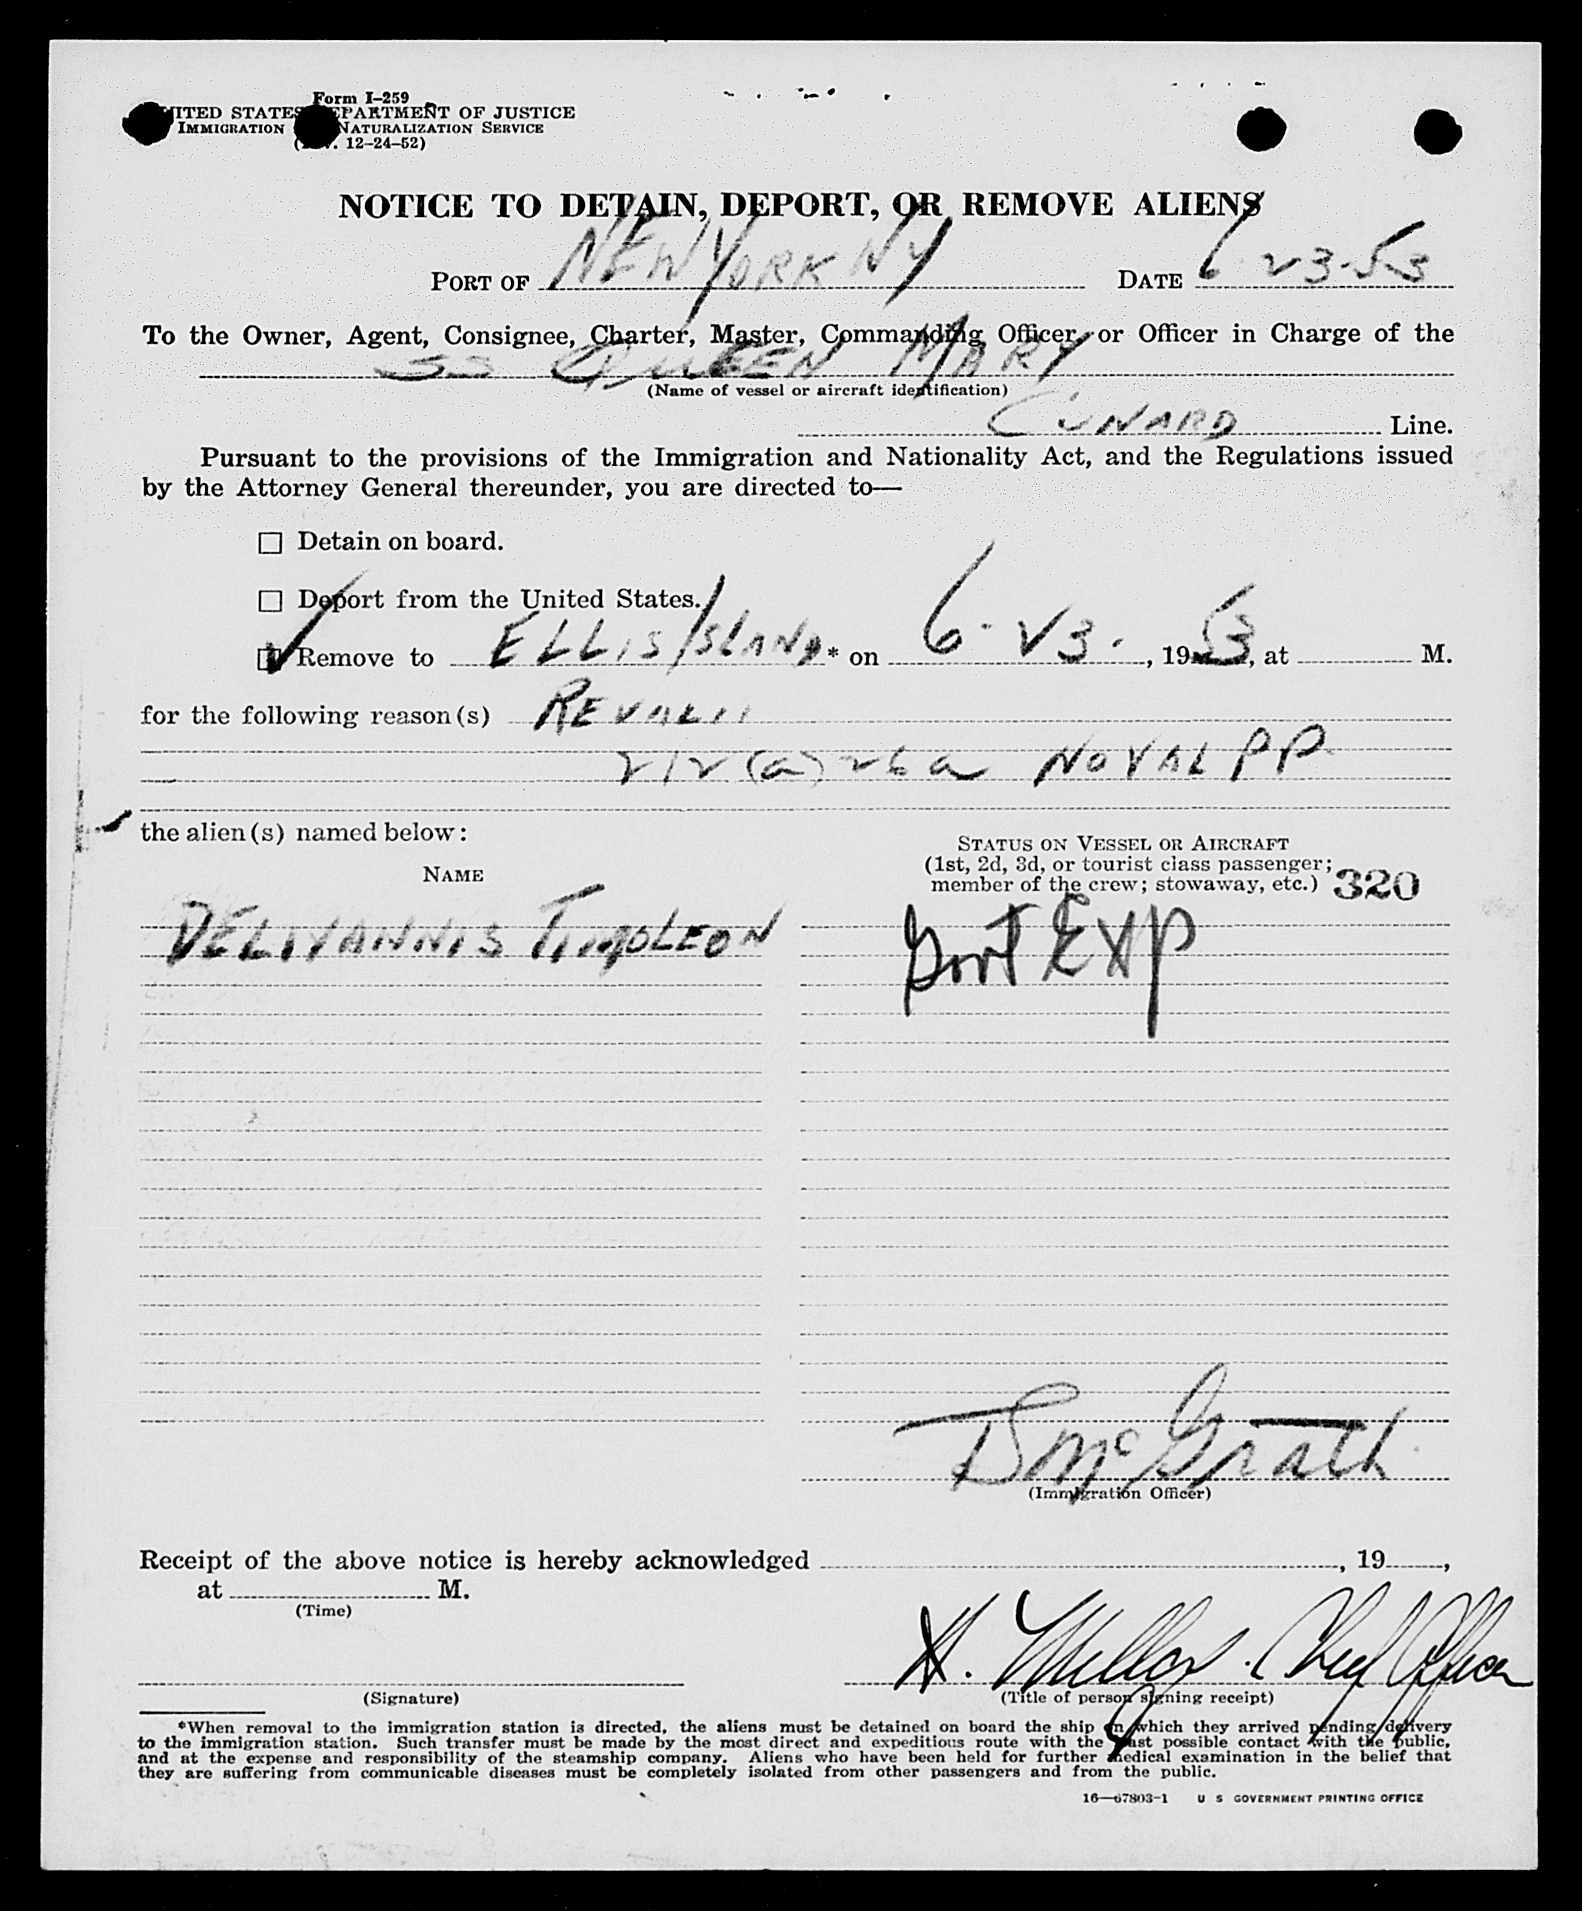 Form I-259
UNITED STATES DEPARTMENT OF JUSTICE
IMMIGRATION NATURALIZATION SERVICE
12-24-52)
NOTICE TO DETAIN, DEPORT, OR REMOVE ALIENS
PORT OF NEW YORK NY DATE 6-23-53
To the Owner, Agent, Consignee, Charter, Master, Commanding Officer, or Officer in Charge of the
SS QUEEN MARY
(Name of vessel or aircraft identification)
CUNARD Line.
Pursuant to the provisions of the Immigration and Nationality Act, and the Regulations issued
by the Attorney General thereunder, you are directed to—
☐ Detain on board.
☐ Deport from the United States.
☑ Remove to ELLIS ISLAND* on 6-23-, 1953, at M.
for the following reason(s)
212 (a) 26a NO VAL PP
the alien(s) named below:
NAME
STATUS ON VESSEL OR AIRCRAFT
(1st, 2d, 3d, or tourist class passenger;
member of the crew; stowaway, etc.) 320
DELIYANNIS TIMOLEON Govt Exp
McGrath
(Immigration Officer)
Receipt of the above notice is hereby acknowledged , 19 ,
at M.
(Time)
H. Mellor. Chief Officer
(Signature) (Title of person signing receipt)
*When removal to the immigration station is directed, the aliens must be detained on board the ship on which they arrived pending delivery
to the immigration station. Such transfer must be made by the most direct and expeditious route with the least possible contact with the public,
and at the expense and responsibility of the steamship company. Aliens who have been held for further medical examination in the belief that
they are suffering from communicable diseases must be completely isolated from other passengers and from the public.
16—67803-1 U S GOVERNMENT PRINTING OFFICE